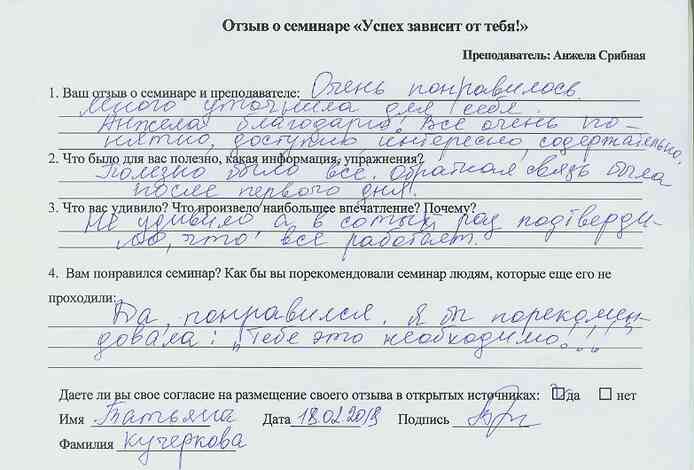 Отзыв о семинаре «Успех зависит от тебя!»
Преподаватель: Анжела Срибная
1. Ваш отзыв о семинаре и преподавателе: Очень понравилось.
Много уточнила для себя.
Анжела благодарю. Все очень по-
нятно, доступно, интересно, содержательно.
2. Что было для вас полезно, какая информация, упражнения?
Полезно было все. Обратная связь была
после первого дня!
3. Что вас удивило? Что произвело наибольшее впечатление? Почему?
Не удивило а в сотый раз подтверди-
ло, что все работает.
4. Вам понравился семинар? Как бы вы порекомендовали семинар людям, которые еще его не
проходили:
Да, понравился. Я бы порекомен-
довала: „Тебе это необходимо...!!!"
Даете ли вы свое согласие на размещение своего отзыва в открытых источниках: да нет
Имя Татьяна Дата 18.02.2019 Подпись
Фамилия Кучеркова